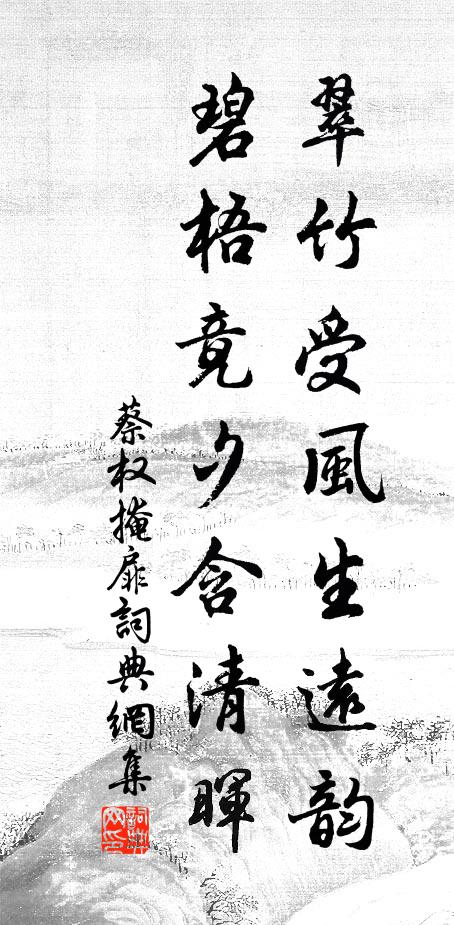 翠竹受風生遠韵
碧梧竟夕含清暉
蔡权掩扉詞典網集